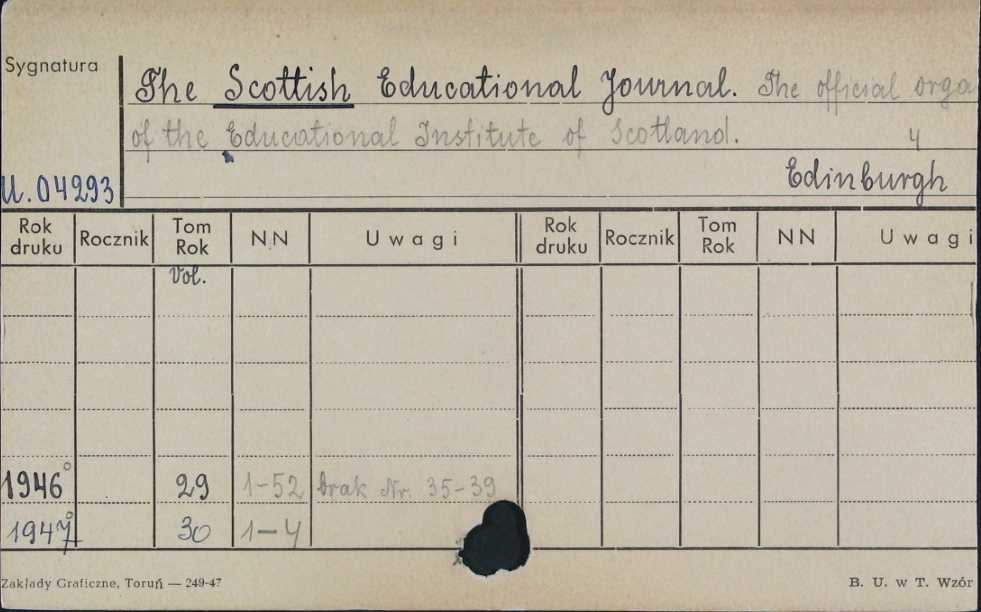 Sygnatura
The Scottish Educational Journal. The official orga
of the Educational Institute of Scotland. 4
U.04293 Edinburgh
Rok druku Rocznik Tom Rok NN Uwagi Rok druku Rocznik Tom Rok NN Uwagi
Vol.
1946° 29 1-52 brak Nr. 35-39
1947° 30 1-4
Zakłady Graficzne, Toruń — 249-47 B. U. w T. Wzór